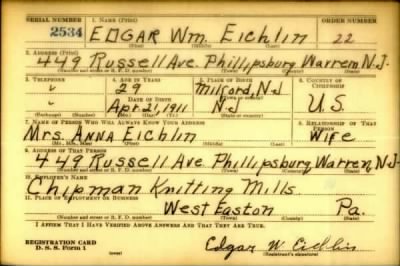 SERIAL NUMBER 1. NAME (Print) ORDER NUMBER
2534 EDGAR Wm. EICHLIN 22
(First) (Middle) (Last)
2. ADDRESS (Print)
449 Russell Ave. Phillipsburg Warren, N.J.
(Number and street or R. F. D. number) (Town) (County) (State)
3. TELEPHONE 4. AGE IN YEARS 5. PLACE OF BIRTH 6. COUNTRY OF CITIZENSHIP
" 29 Milford, N.J
DATE OF BIRTH (Town or county)
" Apr. 21, 1911 N.J U.S
(Exchange) (Number) (Mo.) (Day) (Yr.) (State or country)
7. NAME OF PERSON WHO WILL ALWAYS KNOW YOUR ADDRESS 8. RELATIONSHIP OF THAT PERSON
Mrs. ANNA Eichlin Wife
(Mr., Mrs., Miss) (First) (Middle) (Last)
9. ADDRESS OF THAT PERSON
449 Russell Ave. Phillipsburg, Warren, N.J.
(Number and street or R. F. D. number) (Town) (County) (State)
10. EMPLOYER'S NAME
Chipman Knitting Mills
11. PLACE OF EMPLOYMENT OR BUSINESS
West Easton Pa.
(Number and street or R. F. D. number) (Town) (County) (State)
I AFFIRM THAT I HAVE VERIFIED ABOVE ANSWERS AND THAT THEY ARE TRUE.
REGISTRATION CARD
D. S. S. Form 1
Edgar W. Eichlin
(Registrant's signature)